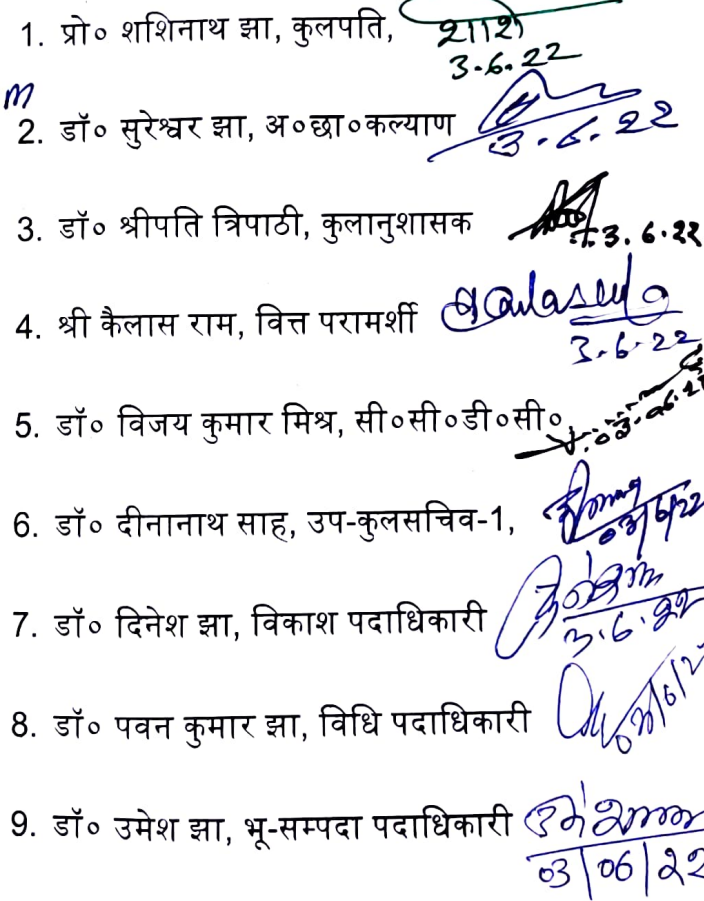 1. प्रो० शशिनाथ झा, कुलपति, शशि
3.6.22
2. डॉ० सुरेश्वर झा, अ०छा०कल्याण 3.6.22
3. डॉ० श्रीपति त्रिपाठी, कुलानुशासक 3.6.22
4. श्री कैलास राम, वित्त परामर्शी
3.6.22
5. डॉ० विजय कुमार मिश्र, सी०सी०डी०सी० 03.06.22
6. डॉ० दीनानाथ साह, उप-कुलसचिव-1,
03/6/22
7. डॉ० दिनेश झा, विकाश पदाधिकारी
3.6.22
8. डॉ० पवन कुमार झा, विधि पदाधिकारी
9. डॉ० उमेश झा, भू-सम्पदा पदाधिकारी
03/06/22